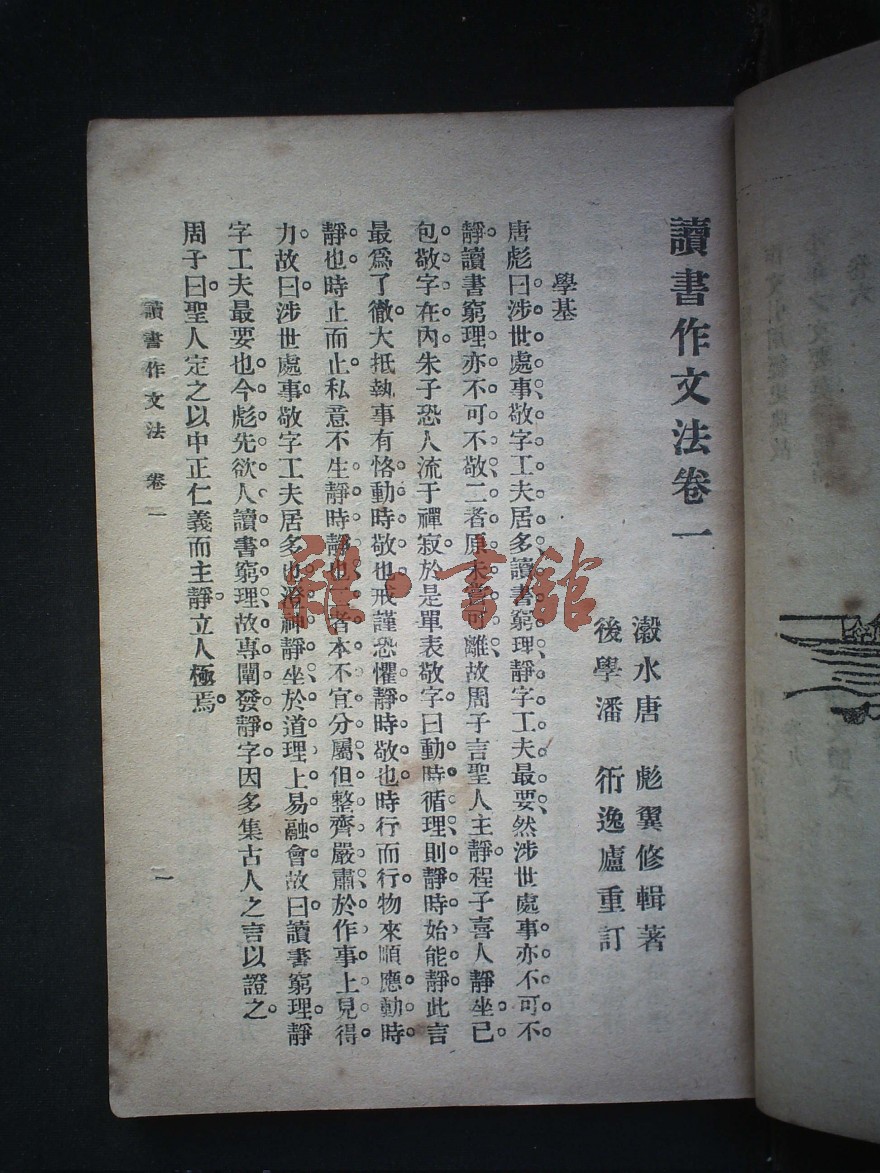 讀書作文法卷一
瀫水唐　彪翼修輯著
後學潘　衎逸廬重訂
學基
唐彪曰涉世處事敬字工夫居多讀書窮理靜字工夫最要然涉世處事亦不可不
靜讀書窮理亦不可不敬二者原未嘗可離故周子言聖人主靜程子喜人靜坐已
包敬字在內朱子恐人流于禪寂於是單表敬字曰動時循理則靜時始能靜此言
最爲了徹大抵執事有恪動時敬也戒謹恐懼靜時敬也時行而行物來順應動時
靜也時止而止私意不生靜時靜也二者本不宜分屬但整齊嚴肅於作事上見得
力故曰涉世處事敬字工夫居多也澄神靜坐於道理上易融會故曰讀書窮理靜
字工夫最要也今彪先欲人讀書窮理故專闡發靜字因多集古人之言以證之
周子曰聖人定之以中正仁義而主靜立人極焉
讀書作文法　卷一
一
雜·書館